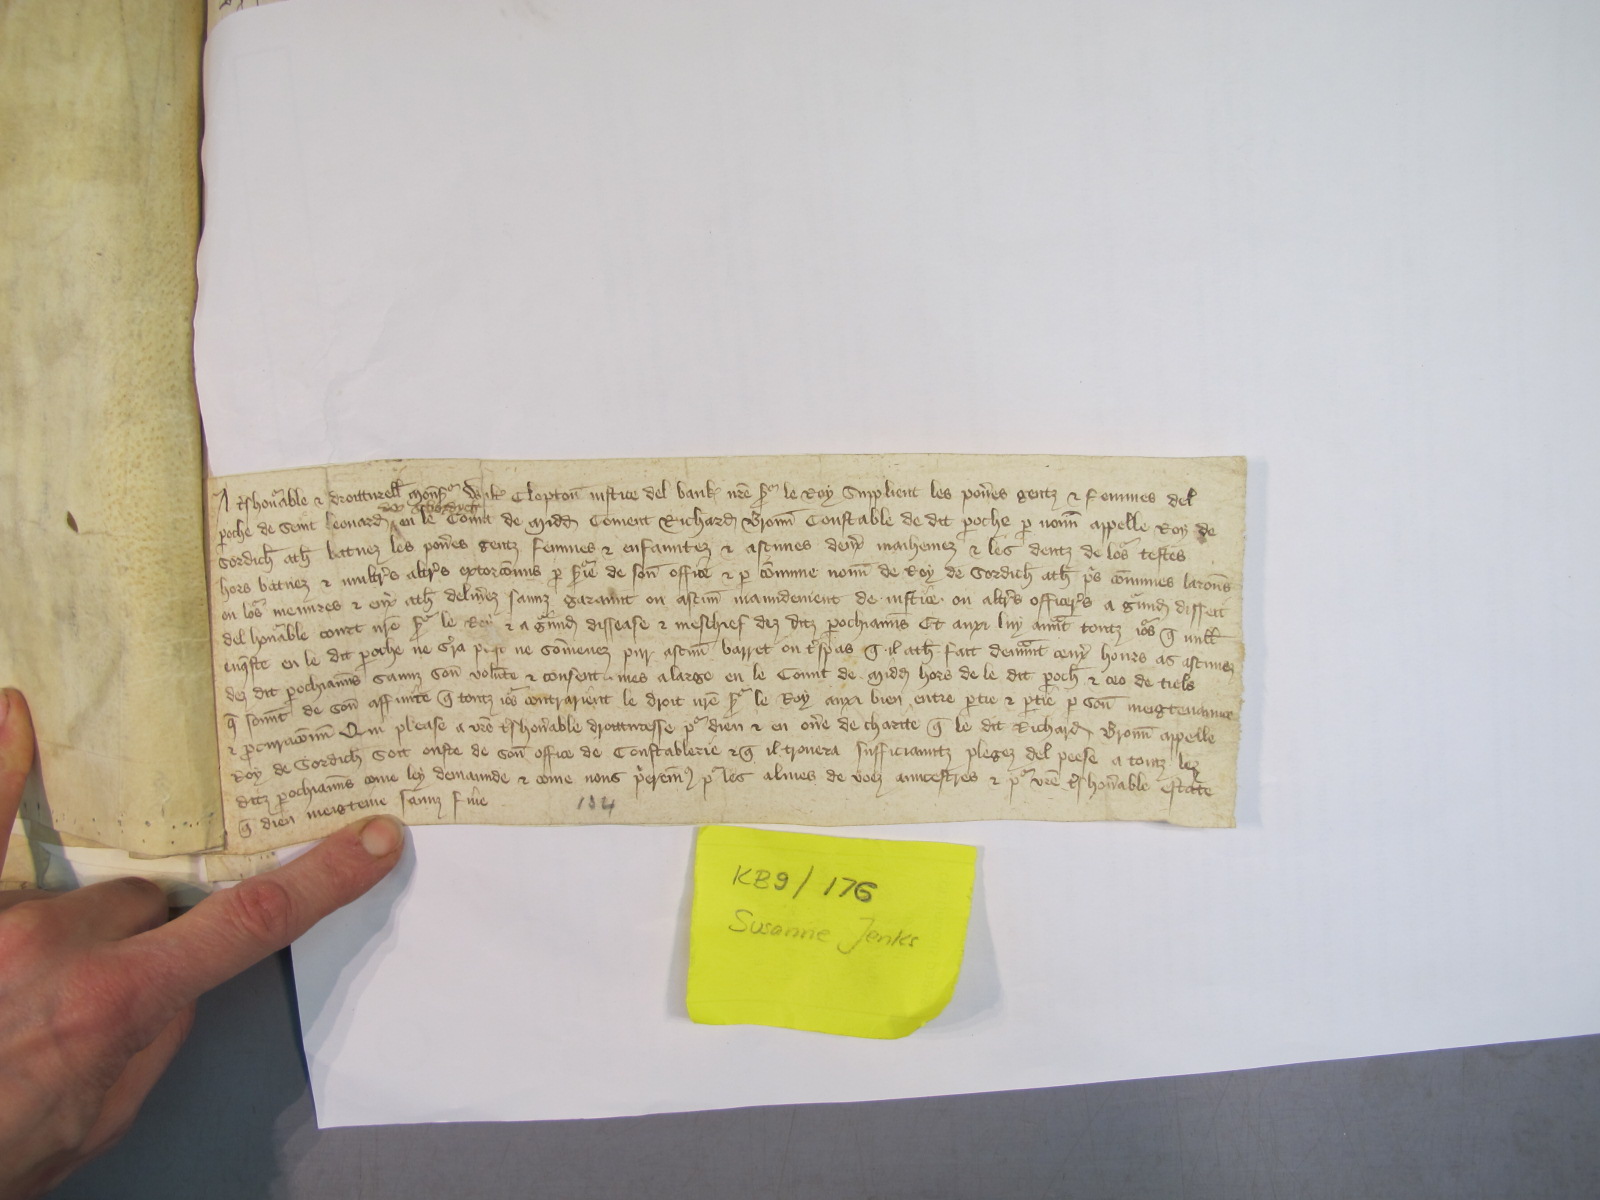 A t'shon'able & droitturell mons' Wauт' Clopton justice del bank nr̄e s' le Roy Supplient les pou'es gentz & femmes del
p'oche de Seint Leonard en le Counte de Midd Coment Richard Broun Constable de dit p'oche p' noun appelle Roy de
Sordich ath batuez les pou'es gentz femmes & enfauntez & ascunes deux̄ mahemez & les dentz de lo's testes
hors batuez & mult's alt's extorcōuns p' s'ie de son office & p' cōmune noun de Roy de Sordich ath p's cōmunes larouns
ou lo's meinres & eux ath deliu'ez saunz garaunt ou ascun maundement de justice ou alt's officers a g'und disseit
del hon'able court nr̄e s' le Roy & a g'und dissease & meschief dez ditz p'ochianns Et auxi luy auant toutz jo's q̄ null
enq̄ste en le dit p'oche ne s'ra p'is ne somenez pur ascun barret ou t'spas q̄ il ath fait
dez dit p'ochianns saunz son volūte & consent mes a large en le Counte de Midd hors de le dit p'och & ceo de tiels
q̄ sount de son affinite q̄ toutz jo's contrarient le droit nr̄e s' le Roy auxi bien entre p'tie & p'tie p' son meigtenaunce
& p'curacōun Que please a vr̄e t'shon'able droitturesse p' dieu & en ou'e de charite q̄ le dit Richard Broun appelle
Roy de Sordich soit ouste de son office de Constablerie & q̄ il trouera sufficiauntz plegez del peese a toutz lez
ditz p'ochianns come ley demaunde & come nous p'erem's p' les almes de voez auncestres & p' vr̄e t'shon'able estate
q̄ dieu meigteine saunz fine
134
KB9/176
Susanne Jenks